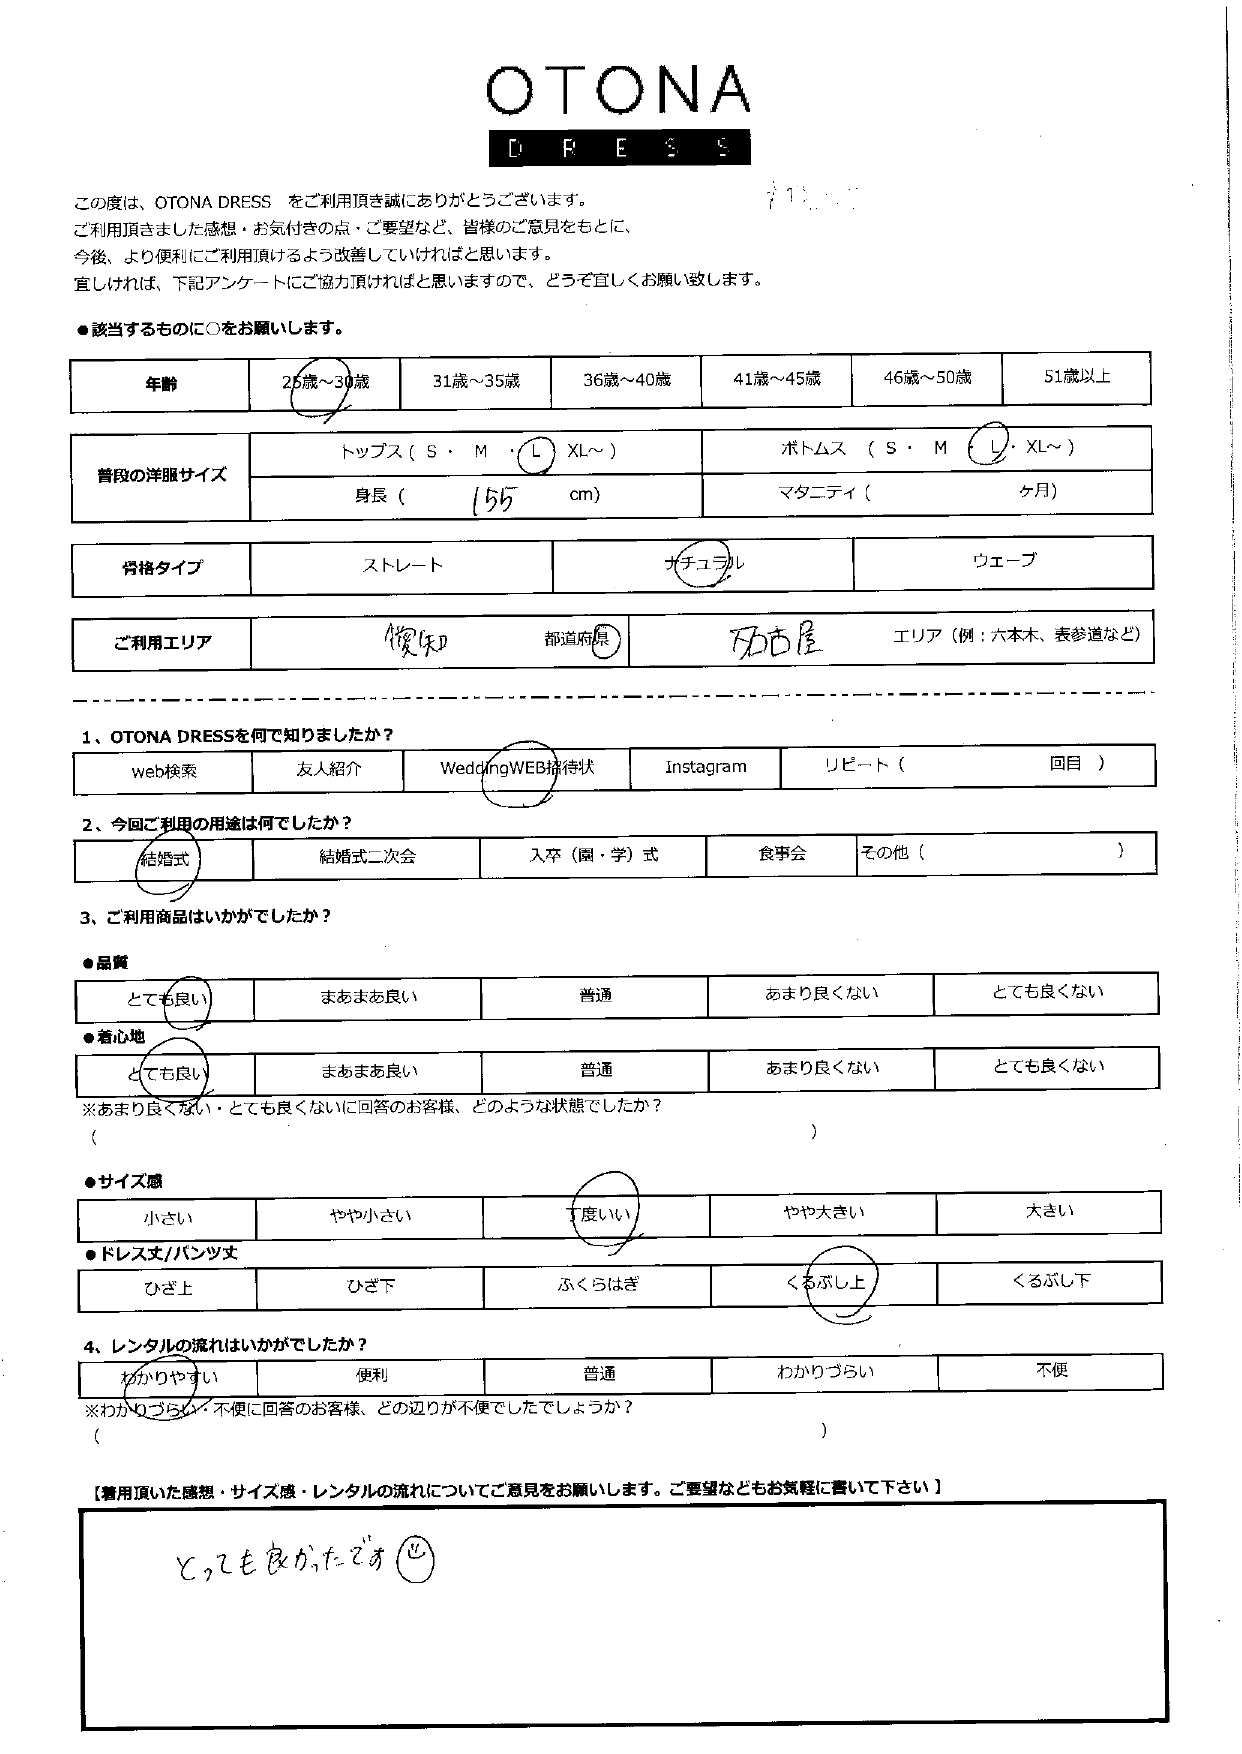 OTONA
DRESS
この度は、OTONA DRESS をご利用頂き誠にありがとうございます。
ご利用頂きました感想・お気付きの点・ご要望など、皆様のご意見をもとに、
今後、より便利にご利用頂けるよう改善していければと思います。
宜しければ、下記アンケートにご協力頂ければと思いますので、どうぞ宜しくお願い致します。
●該当するものに○をお願いします。
年齢 25歳～30歳 31歳～35歳 36歳～40歳 41歳～45歳 46歳～50歳 51歳以上
普段の洋服サイズ トップス ( S ・ M ・ L XL～ ) ボトムス ( S ・ M ・ L ・ XL～ )
身長 ( 155 cm) マタニティ ( ケ月)
骨格タイプ ストレート ナチュラル ウェーブ
ご利用エリア 愛知 都道府県 名古屋 エリア（例：六本木、表参道など）
1、OTONA DRESSを何で知りましたか？
web検索 友人紹介 WeddingWEB招待状 Instagram リピート（ 回目 ）
2、今回ご利用の用途は何でしたか？
結婚式 結婚式二次会 入卒（園・学）式 食事会 その他（ ）
3、ご利用商品はいかがでしたか？
●品質
とても良い まあまあ良い 普通 あまり良くない とても良くない
●着心地
とても良い まあまあ良い 普通 あまり良くない とても良くない
※あまり良くない・とても良くないに回答のお客様、どのような状態でしたか？
( )
●サイズ感
小さい やや小さい 丁度いい やや大きい 大きい
●ドレス丈/パンツ丈
ひざ上 ひざ下 ふくらはぎ くるぶし上 くるぶし下
4、レンタルの流れはいかがでしたか？
わかりやすい 便利 普通 わかりづらい 不便
※わかりづらい・不便に回答のお客様、どの辺りが不便でしたでしょうか？
( )
【着用頂いた感想・サイズ感・レンタルの流れについてご意見をお願いします。ご要望などもお気軽に書いて下さい】
とっても良かったです